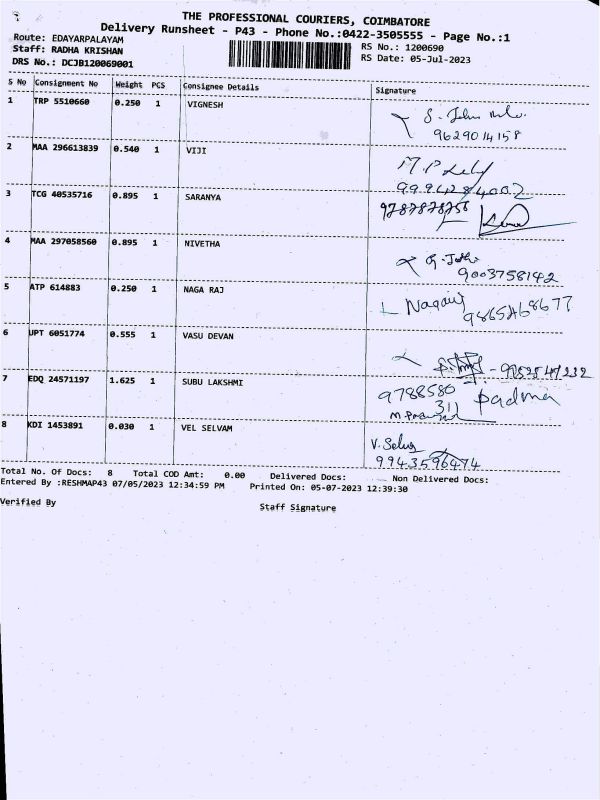 THE PROFESSIONAL COURIERS, COIMBATORE
Delivery Runsheet - P43 - Phone No.:0422-3505555 - Page No.:1
Route: EDAYARPALAYAM
Staff: RADHA KRISHAN
DRS No.: DCJB120069001
RS No.: 1200690
RS Date: 05-Jul-2023
S No Consignment No Weight PCS Consignee Details Signature
1 TRP 5510660 0.250 1 VIGNESH
9629014158
2 MAA 296613839 0.540 1 VIJI
9994284002
3 TCG 40535716 0.895 1 SARANYA
9787878756
4 MAA 297058560 0.895 1 NIVETHA
9003758142
5 ATP 614883 0.250 1 NAGA RAJ
Nagaraj
9865468677
6 UPT 6051774 0.555 1 VASU DEVAN
7 EDQ 24571197 1.625 1 SUBU LAKSHMI
9788580 Padma
311
8 KDI 1453891 0.030 1 VEL SELVAM
V. Selva
9943596474
Total No. Of Docs: 8 Total COD Amt: 0.00 Delivered Docs: Non Delivered Docs:
Entered By :RESHMAP43 07/05/2023 12:34:59 PM Printed On: 05-07-2023 12:39:30
Verified By
Staff Signature